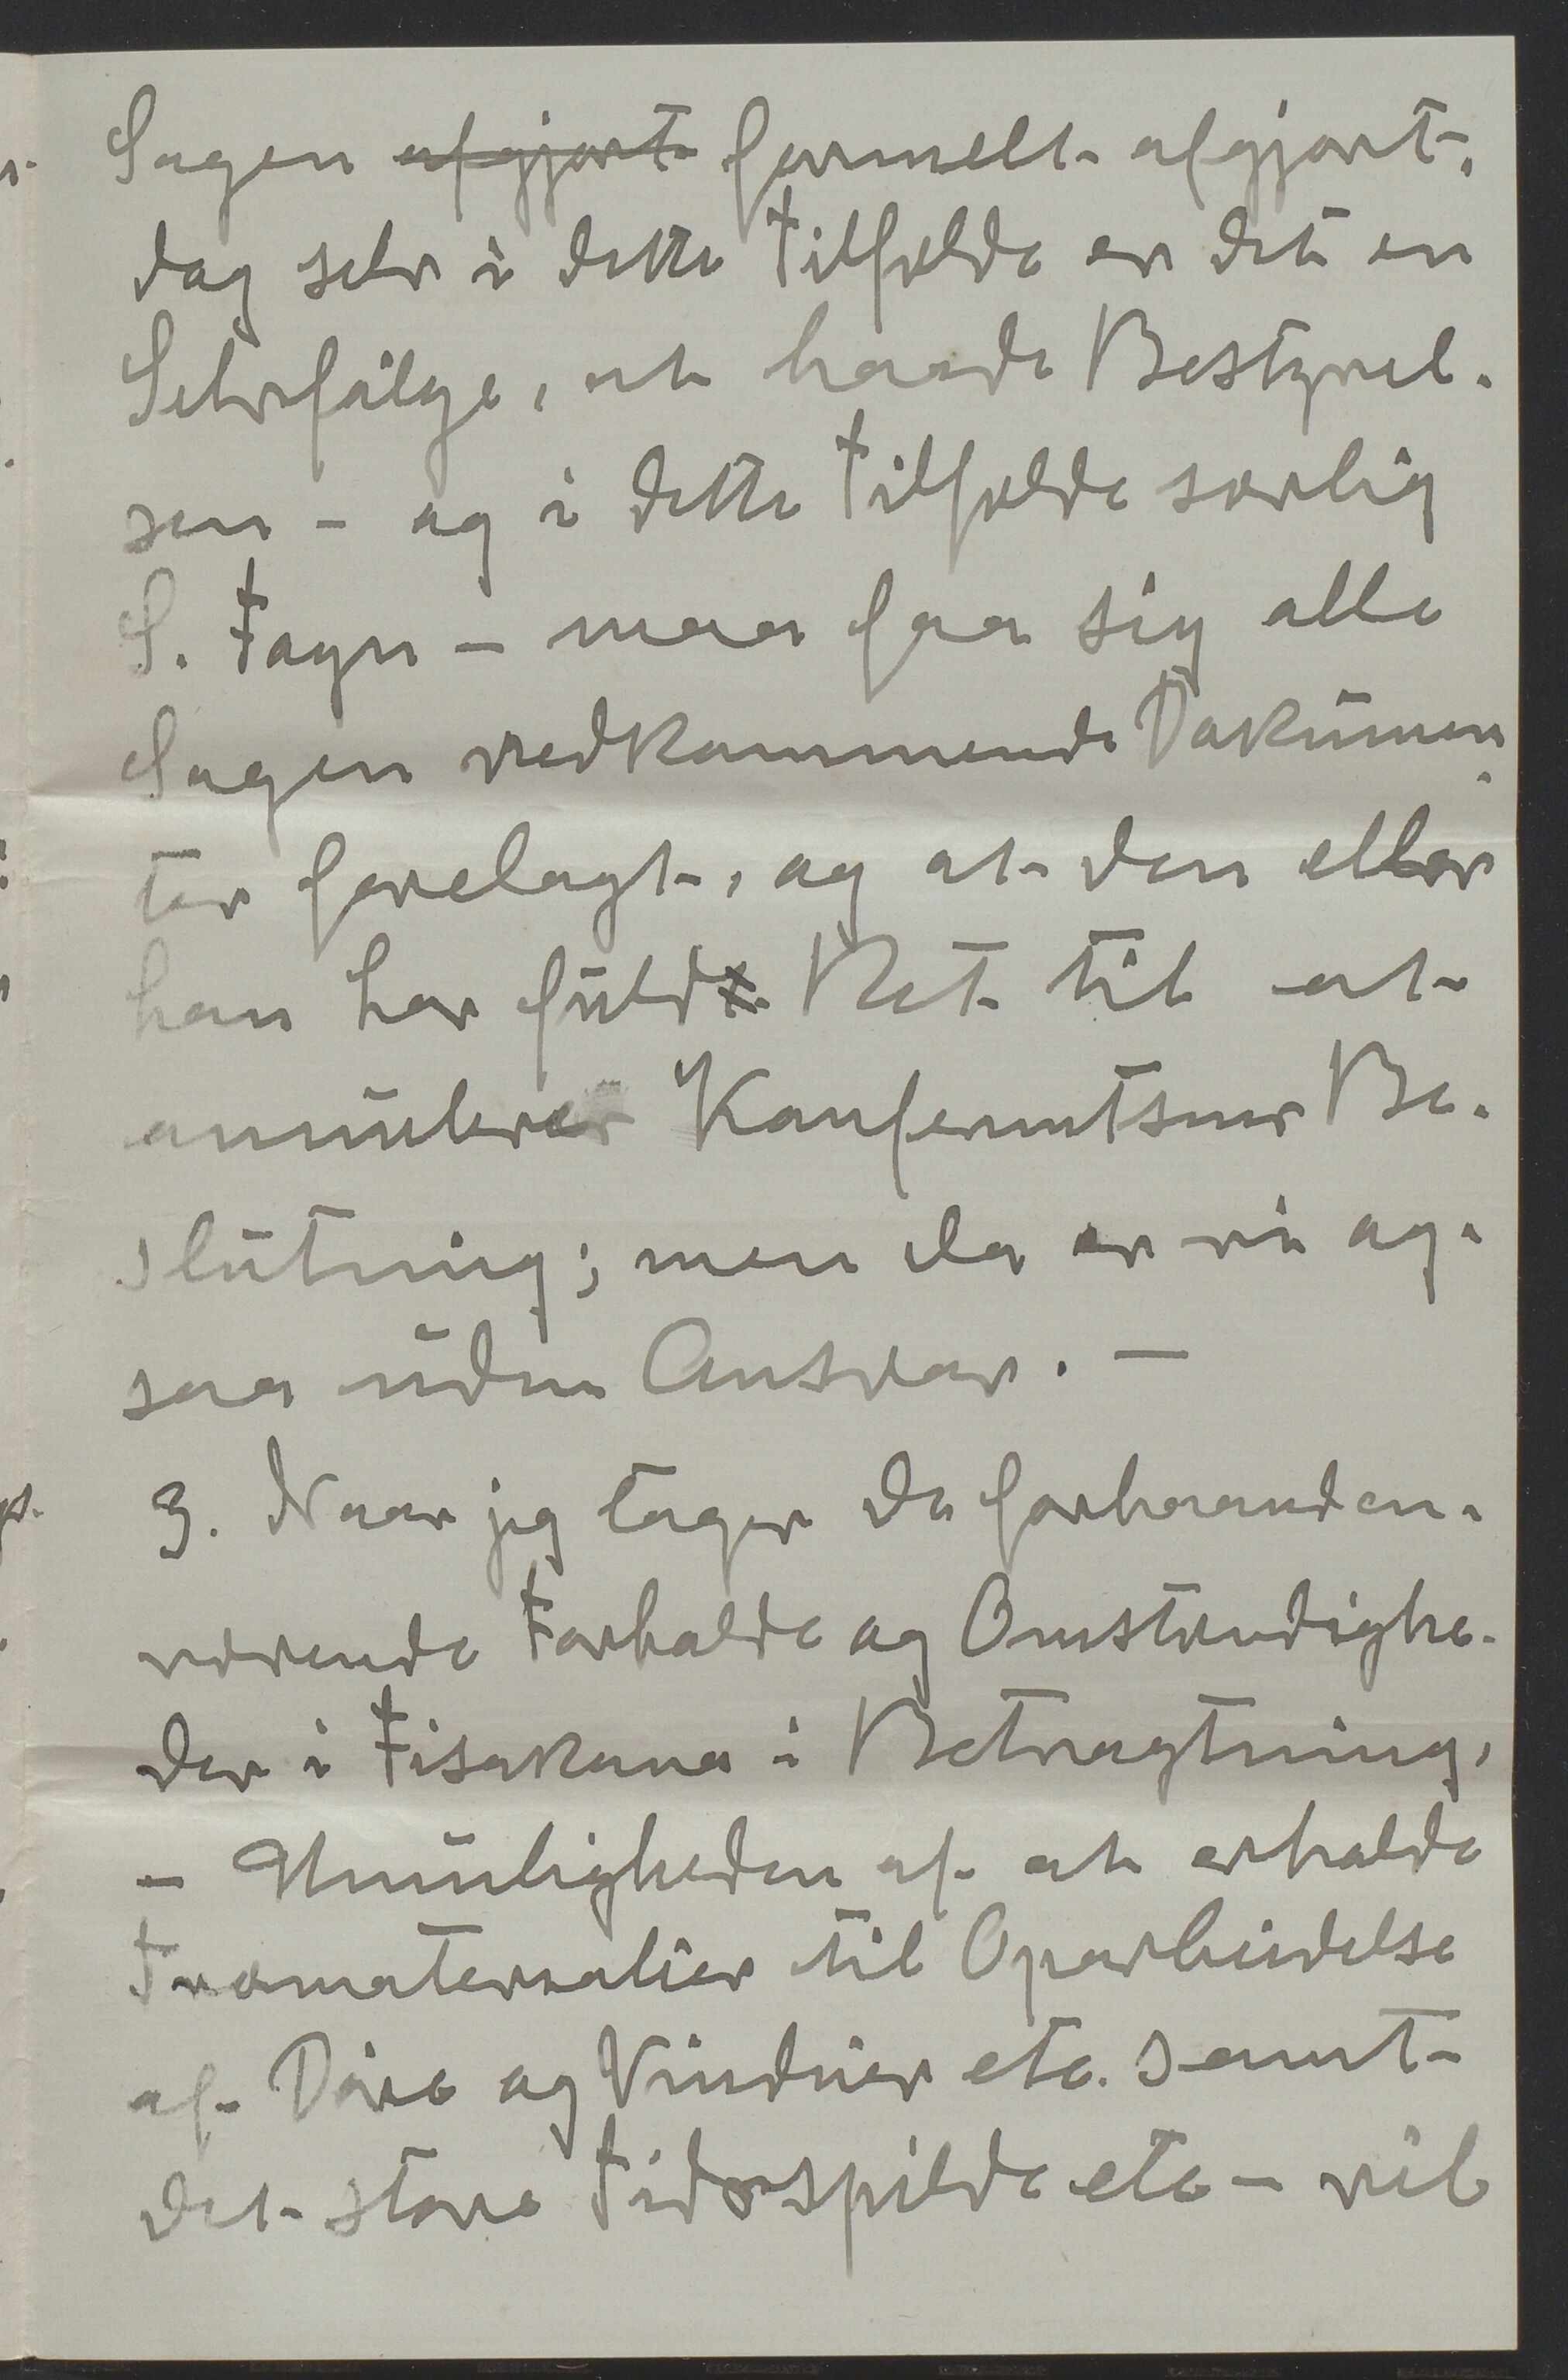 Sagen ~~afgjort~~ formelt afgjort,
dog selv i dette Tilfælde er det en
Selvfølge, at baade Bestyrel-
sen - og i dette Tilfælde særlig
S. Fagn - maa faa sig alle
Sagen vedkommende Dokumen-
ter forelagt, og at den eller
han har fuld Ret til at
annulere Konferentsens Be-
slutning; men da er vi og-
saa uden Ansvar. -
3. Naar jeg tager de forhaanden-
værende Forholde og Omstændighe-
der i Fisakana i Betragtning,
- Umuligheden af at erholde
Træmaterialier til Oparbeidelse
af Døre og Vinduer etc. samt
det store Tidsspilde etc - vil